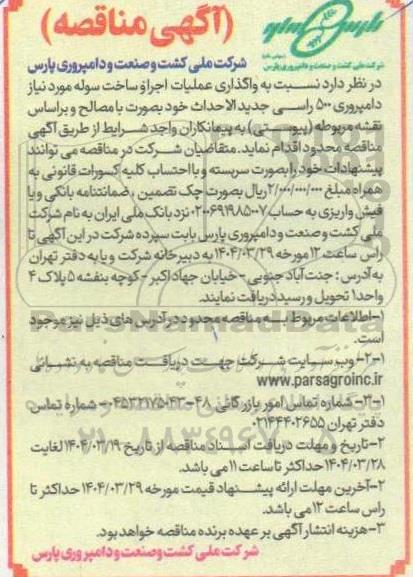 (آگهی مناقصه)
شرکت ملی کشت و صنعت و دامپروری پارس
شرکت ملی کشت و صنعت و دامپروری پارس
در نظر دارد نسبت به واگذاری عملیات اجرا و ساخت سوله مورد نیاز
دامپروری ۵۰۰ راسی جدید الاحداث خود بصورت با مصالح و براساس
نقشه مربوطه (پیوستی) به پیمانکاران واجد شرایط از طریق آگهی
مناقصه محدود اقدام نماید. متقاضیان شرکت در مناقصه می توانند
پیشنهادات خود را بصورت سربسته و با احتساب کلیه کسورات قانونی به
همراه مبلغ ۲/۰۰۰/۰۰۰/۰۰۰ ریال بصورت چک تضمین ، ضمانتنامه بانکی و یا
فیش واریزی به حساب ۰۲۰۰۶۹۱۹۸۵۰۰۷ نزد بانک ملی ایران به نام شرکت
ملی کشت و صنعت و دامپروری پارس بابت سپرده شرکت در این آگهی تا
راس ساعت ۱۲ مورخه ۱۴۰۴/۰۳/۲۹ به دبیرخانه شرکت و یا به دفتر تهران
به آدرس : جنت آباد جنوبی – خیابان جهاد اکبر – کوچه بنفشه ۵ پلاک ۴
واحد ۱ تحویل و رسید دریافت نمایند.
۱–اطلاعات مربوط به مناقصه محدود در آدرس های ذیل نیز موجود
است.
۱–۲– وب سایت شرکت جهت دریافت مناقصه به نشانی
www.parsagroinc.ir
۱–۳– شماره تماس امور بازرگانی ۴۸–۰۴۵۳۲۱۷۵۰۴۳ – شماره تماس
دفتر تهران ۰۲۱۴۴۴۰۲۶۵۵
۲–تاریخ و مهلت دریافت اسناد مناقصه از تاریخ ۱۴۰۴/۰۳/۱۹ لغایت
۱۴۰۴/۰۳/۲۸ حداکثر تا ساعت ۱۱ می باشد.
۲–آخرین مهلت ارائه پیشنهاد قیمت مورخه ۱۴۰۴/۰۳/۲۹ حداکثر تا
راس ساعت ۱۲ می باشد.
۳–هزینه انتشار آگهی بر عهده برنده مناقصه خواهد بود.
شرکت ملی کشت و صنعت و دامپروری پارس